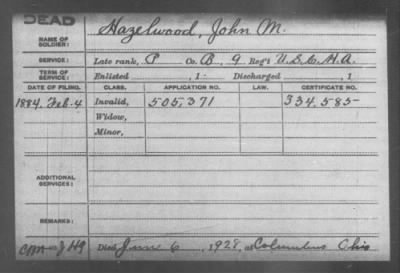 DEAD
NAME OF SOLDIER: Hazelwood, John M.
SERVICE: Late rank, P Co. B, 9 Reg't U.S.C.H.A.
TERM OF SERVICE: Enlisted , 1 Discharged , 1
DATE OF FILING. CLASS. APPLICATION NO. LAW. CERTIFICATE NO.
1884, Feb. 4 Invalid, 505,371 334,585
Widow,
Minor,
ADDITIONAL SERVICES:
REMARKS:
Died June 6, 1928, at Columbus Ohio